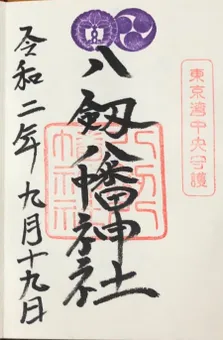 東京湾中央守護
八剱八幡神社
令和二年九月十九日